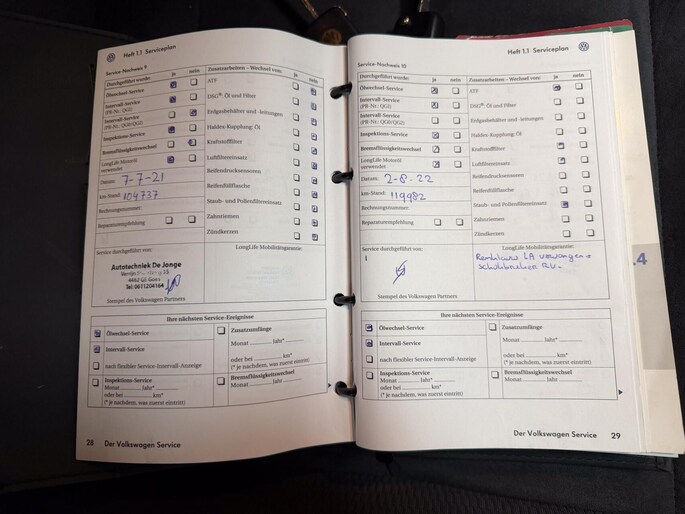 Heft 1.1 Serviceplan
Service-Nachweis 9
Durchgeführt wurde: ja nein
Ölwechsel-Service
Intervall-Service
(PR-Nr.: QG1)
Intervall-Service
(PR-Nr.: QG0/QG2)
Inspektions-Service
Bremsflüssigkeitswechsel
LongLife Motoröl
verwendet
Datum: 7-7-21
km-Stand: 104737
Rechnungsnummer:
Reparaturempfehlung
Zusatzarbeiten – Wechsel von: ja nein
ATF
DSG®: Öl und Filter
Erdgasbehälter und -leitungen
Haldex-Kupplung: Öl
Kraftstofffilter
Luftfiltereinsatz
Reifendrucksensoren
Reifenfüllflasche
Staub- und Pollenfiltereinsatz
Zahnriemen
Zündkerzen
Service durchgeführt von:
Autotechniek De Jonge
Tel: 0611204164
Stempel des Volkswagen Partners
LongLife Mobilitätsgarantie
Ihre nächsten Service-Ereignisse
Ölwechsel-Service
Intervall-Service
nach flexibler Service-Intervall-Anzeige
Inspektions-Service
Monat Jahr*
oder bei km*
(* je nachdem, was zuerst eintritt)
Zusatzumfänge
Monat Jahr*
oder bei km*
(* je nachdem, was zuerst eintritt)
Bremsflüssigkeitswechsel
Monat Jahr
28 Der Volkswagen Service
Heft 1.1 Serviceplan
Service-Nachweis 10
Durchgeführt wurde: ja nein
Ölwechsel-Service
Intervall-Service
(PR-Nr.: QG1)
Intervall-Service
(PR-Nr.: QG0/QG2)
Inspektions-Service
Bremsflüssigkeitswechsel
LongLife Motoröl
verwendet
Datum: 2-8-22
km-Stand: 119982
Rechnungsnummer:
Reparaturempfehlung
Zusatzarbeiten – Wechsel von: ja nein
ATF
DSG®: Öl und Filter
Erdgasbehälter und -leitungen
Haldex-Kupplung: Öl
Kraftstofffilter
Luftfiltereinsatz
Reifendrucksensoren
Reifenfüllflasche
Staub- und Pollenfiltereinsatz
Zahnriemen
Zündkerzen
Service durchgeführt von:
Stempel des Volkswagen Partners
LongLife Mobilitätsgarantie
Ihre nächsten Service-Ereignisse
Ölwechsel-Service
Intervall-Service
nach flexibler Service-Intervall-Anzeige
Inspektions-Service
Monat Jahr*
oder bei km*
(* je nachdem, was zuerst eintritt)
Zusatzumfänge
Monat Jahr*
oder bei km*
(* je nachdem, was zuerst eintritt)
Bremsflüssigkeitswechsel
Monat Jahr
Der Volkswagen Service 29
.4